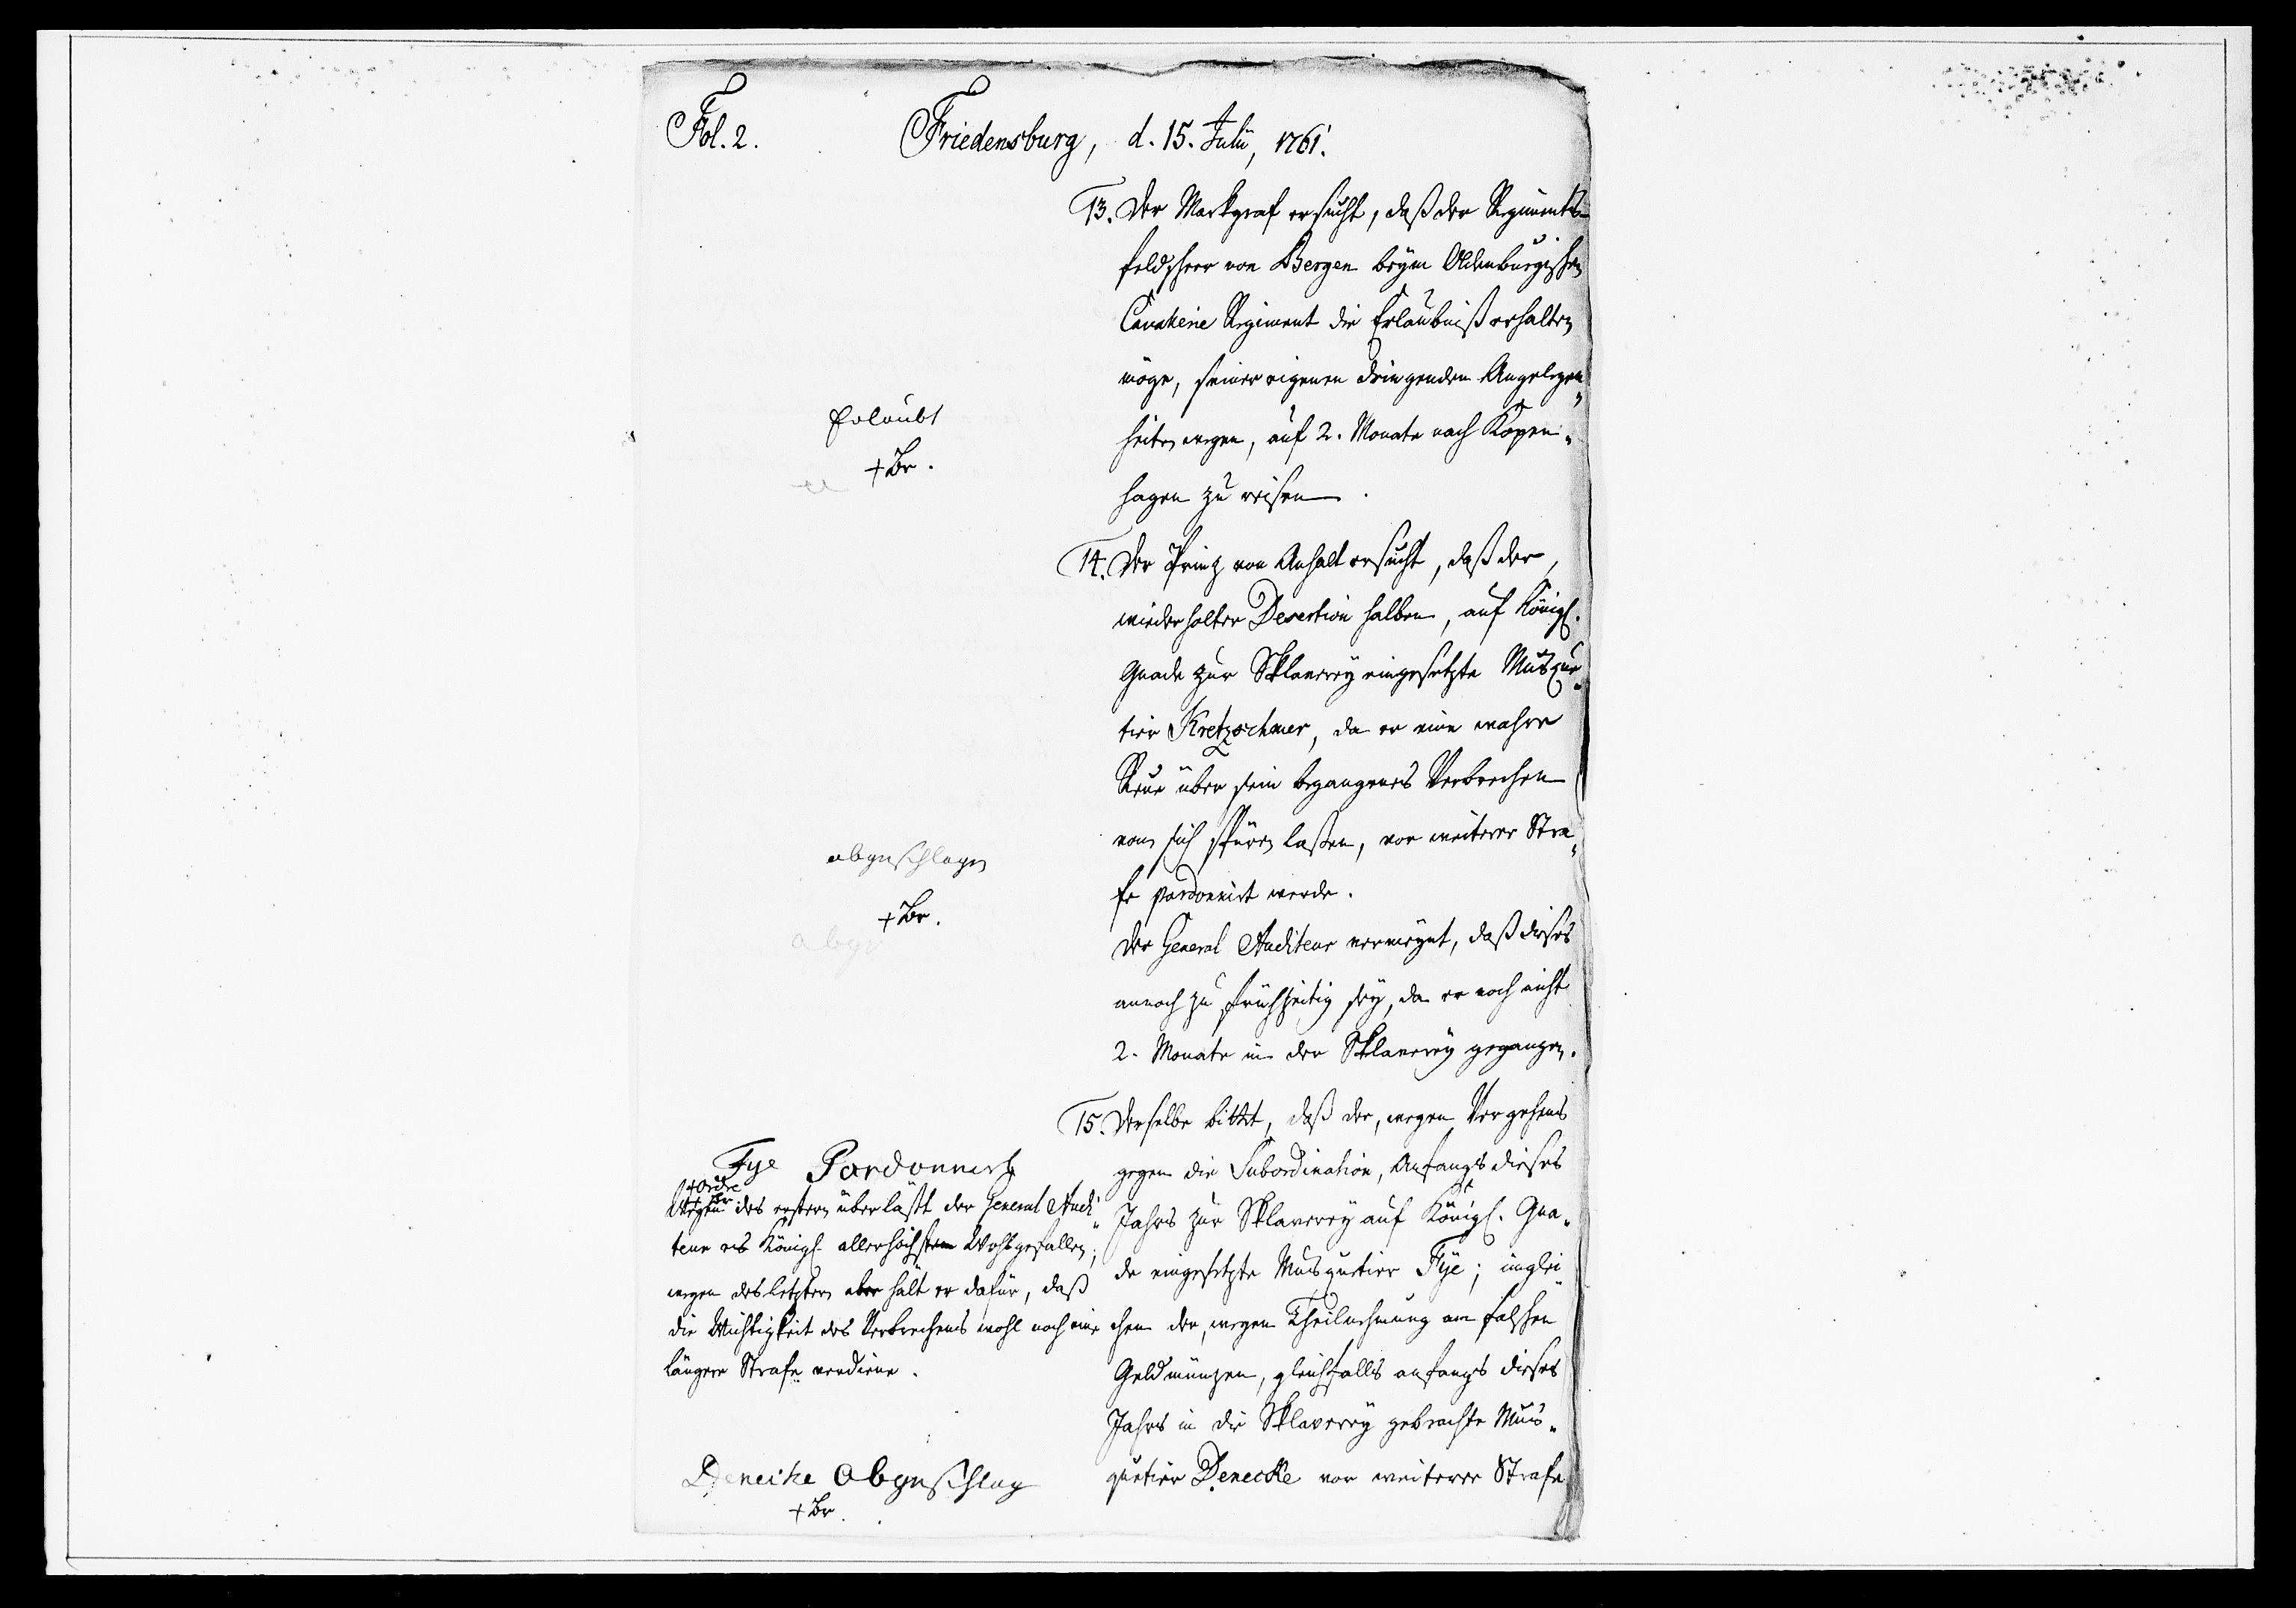 Fol. 2.
Friedensburg, d. 15. Julii, 1761.
13. Der Markgraf ersucht, daß der Regiments-
feldscheer von Bergen beym Oldenburgischen
Cavallerie Regiment die Erlaubniß erhalten
möge, seiner eigenen dringenden Angelegen„
heiten wegen, auf 2. Monate nach Kopen„
hagen zu reisen.
Erlaubt
+ Br.
14. Der Prinz von Anhalt ersucht, daß der,
wiederholter Desertion halben, auf Königl.
Gnade zur Sklaverey eingesetzte Musque„
tier Kretzschmer, da er eine wahre
Reue über sein begangenes Verbrechen
von sich spüren laßen, vor weiterer Stra„
fe pardonnirt werde.
Der General Auditeur vermeynt, daß dieses
annoch zu frühzeitig sey, da er noch nicht
2. Monate in der Sklaverey gegangen.
abgeschlagen
+ Br.
abge
15. Derselbe bittet, daß der, wegen Vergehens
gegen die Subordination, Anfangs dieses
Jahrs zur Sklaverey auf Königl. Gna„
de eingesetzte Musquetier Fÿe; inglei„
chen der, wegen Theilnehmung an falschen
Geldmünzen, gleichfalls anfangs dieses
Jahrs in die Sklaverey gebrachte Mus„
quetier Denecke vor weiterer Strafe
Fye Pardonnirt
+ Ordre
+ Br.
Wegen des erstern überläßt der General Audi„
teur es Königl. allerhöchstem Wohlgefallen;
wegen des letztern aber hält er dafür, daß
die Wichtigkeit des Verbrechens wohl noch eine
längere Strafe verdiene.
Denecke abgeschlag
+ Br.